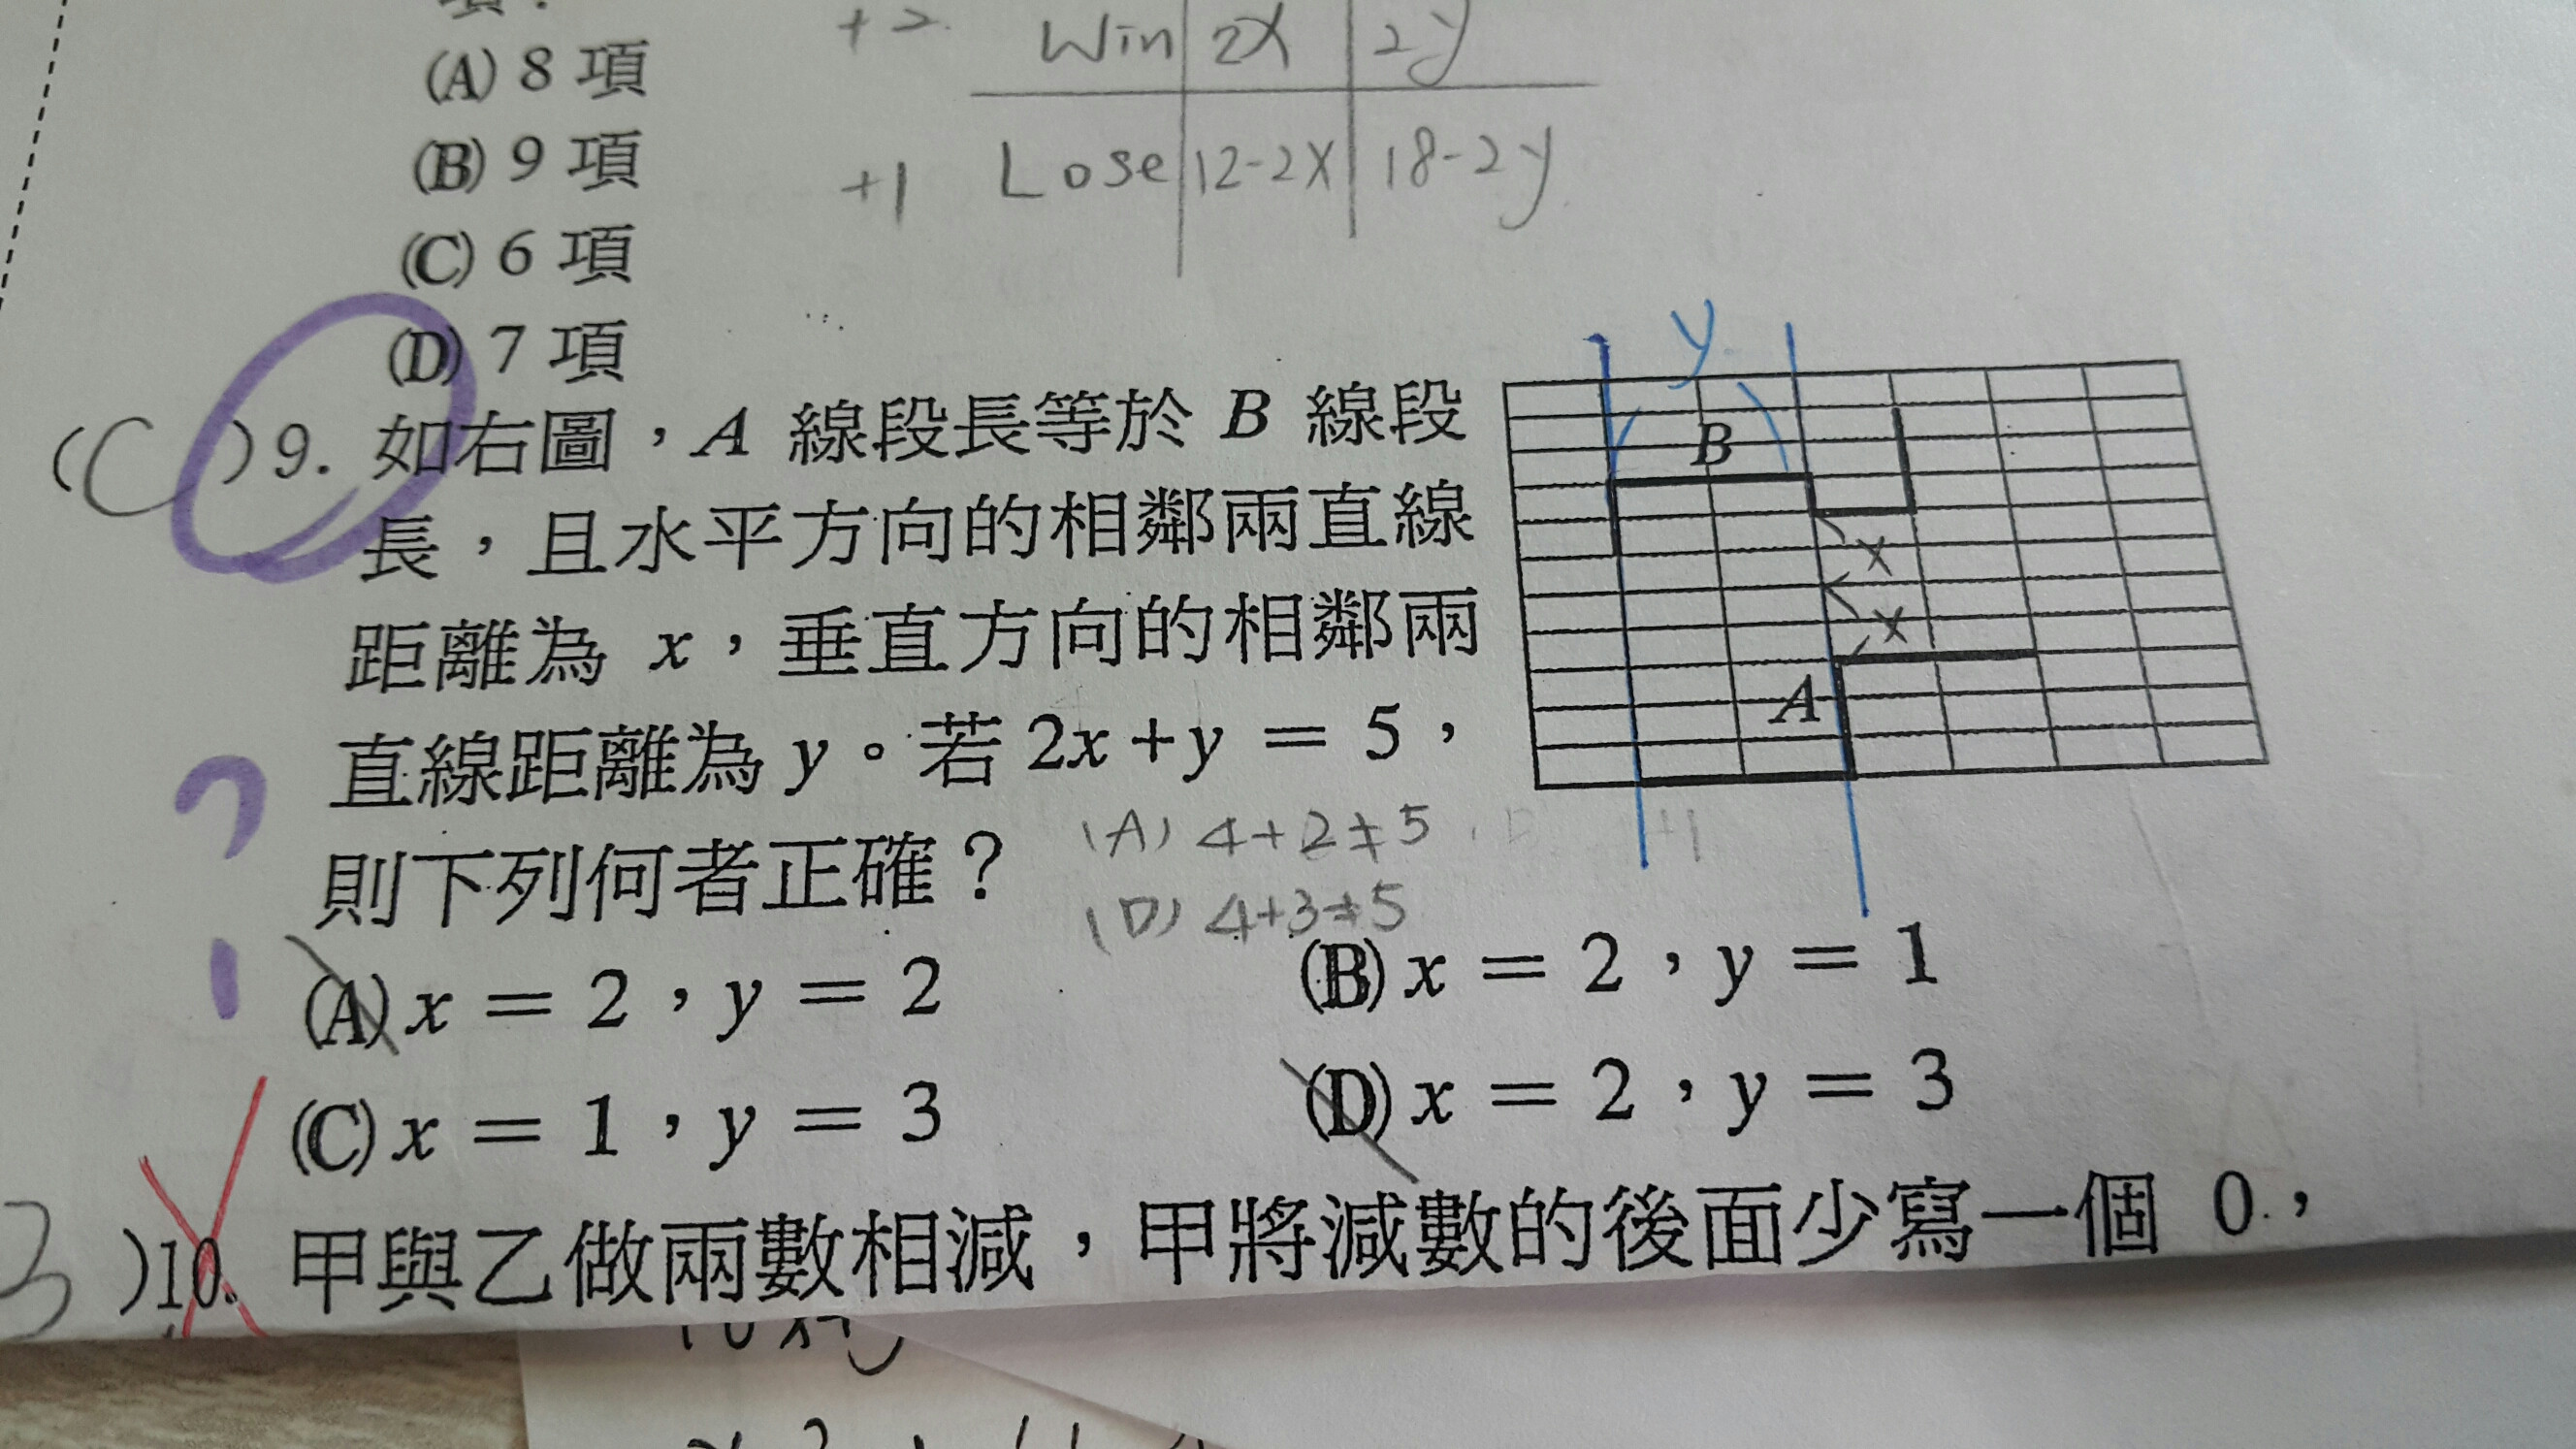 (A) 8 項
(B) 9 項
(C) 6 項
(D) 7 項
+2 Win 2x 2y
+1 Lose 12-2x 18-2y
(C)9. 如右圖，A 線段長等於 B 線段
長，且水平方向的相鄰兩直線
距離為 x，垂直方向的相鄰兩
直線距離為 y。若 2x+y = 5，
則下列何者正確？
(A) 4+2≠5
(D) 4+3≠5
y
B
x
x
A
(A) x = 2，y = 2
(B) x = 2，y = 1
(C) x = 1，y = 3
(D) x = 2，y = 3
)10. 甲與乙做兩數相減，甲將減數的後面少寫一個 0，
?